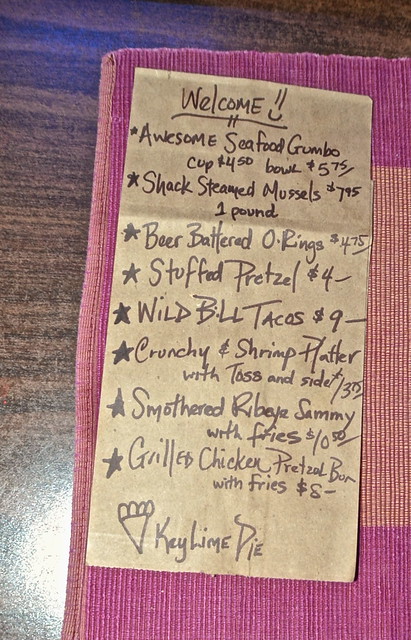 Welcome
*Awesome Seafood Gumbo
cup $4.50 bowl $5.75/
*Shack Steamed Mussels $7.95
1 pound
★Beer Battered O.Rings $4.75/
★Stuffed Pretzel $4-
★Wild Bill Tacos $9-
★Crunchy & Shrimp Platter
with Toss and side
★Smothered Ribeye Sammy
with fries $10.50/
★Grilled Chicken Pretzel Bun
with fries $8-
Key Lime Pie